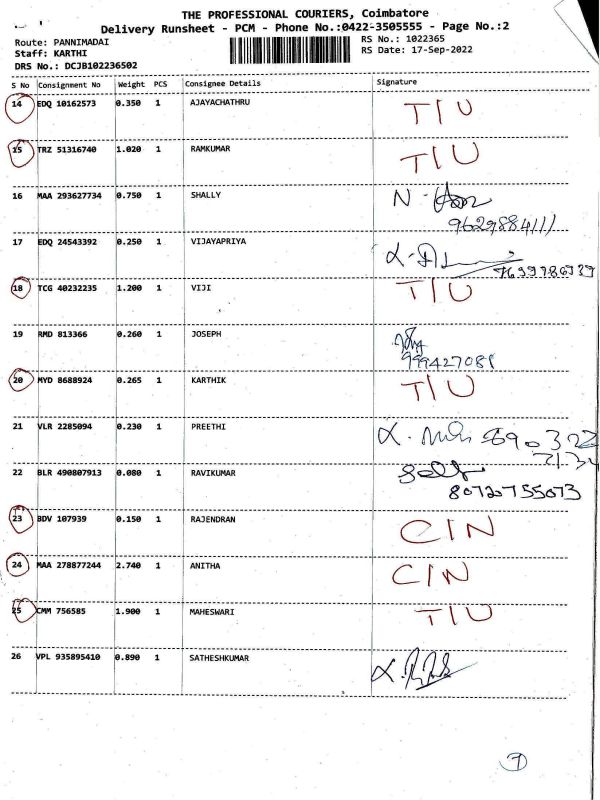 THE PROFESSIONAL COURIERS, Coimbatore
Delivery Runsheet - PCM - Phone No.:0422-3505555 - Page No.:2
Route: PANNIMADAI
RS No.: 1022365
Staff: KARTHI
RS Date: 17-Sep-2022
DRS No.: DCJB102236502
S No Consignment No Weight PCS Consignee Details Signature
14 EDQ 10162573 0.350 1 AJAYACHATHRU T/U
15 TRZ 51316740 1.020 1 RAMKUMAR T/U
16 MAA 293627734 0.750 1 SHALLY N.
17 EDQ 24543392 0.250 1 VIJAYAPRIYA
18 TCG 40232235 1.200 1 VIJI T/U
19 RMD 813366 0.260 1 JOSEPH
999427081
20 MYD 8688924 0.265 1 KARTHIK T/U
21 VLR 2285094 0.230 1 PREETHI
22 BLR 490807913 0.080 1 RAVIKUMAR Self
8072755073
23 BDV 107939 0.150 1 RAJENDRAN C/N
24 MAA 278877244 2.740 1 ANITHA C/N
25 CMM 756585 1.900 1 MAHESWARI T/U
26 VPL 935895410 0.890 1 SATHESHKUMAR
7